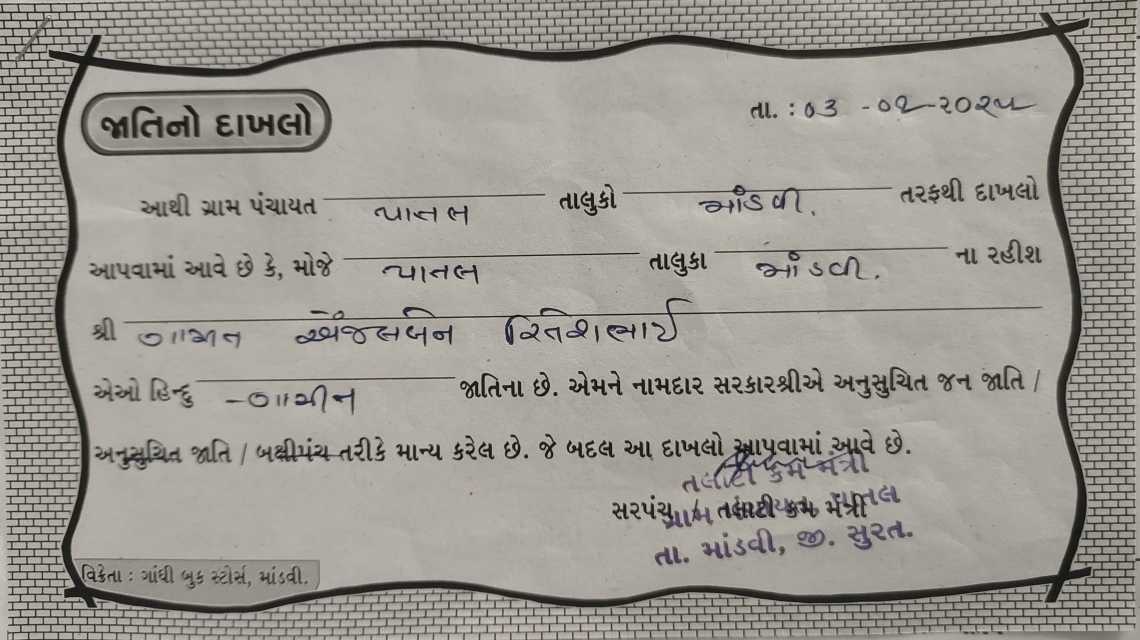 જાતિનો દાખલો
તા. : ૦૩ -૦૨-૨૦૨૫
આથી ગ્રામ પંચાયત પાતલ તાલુકો માંડવી. તરફથી દાખલો
આપવામાં આવે છે કે, મોજે પાતલ તાલુકા માંડવી. ના રહીશ
શ્રી ગામીત એંજલબેન રિતેશભાઈ
એઓ હિન્દુ - ગામીત જાતિના છે. એમને નામદાર સરકારશ્રીએ અનુસુચિત જન જાતિ /
અનુસુચિત જાતિ / બક્ષીપંચ તરીકે માન્ય કરેલ છે. જે બદલ આ દાખલો આપવામાં આવે છે.
તલાટી કમ મંત્રી
સરપંચ / તલાટી કમ મંત્રી
ગ્રામ પાતલ
તા. માંડવી, જી. સુરત.
વિક્રેતા : ગાંધી બુક સ્ટોર્સ, માંડવી.